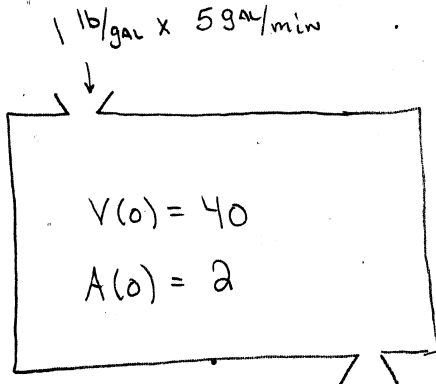 1 lb/gAL x 5 gAL/min
V(0) = 40
A(0) = 2